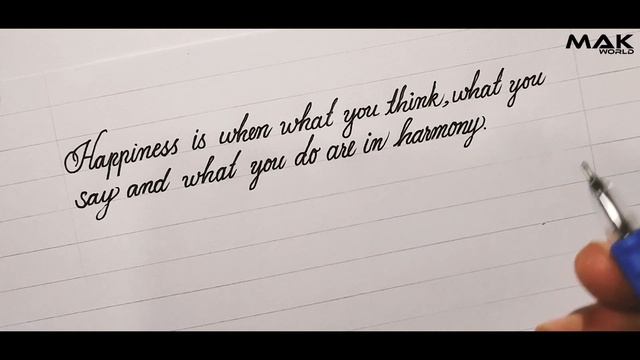 MAK
WORLD
Happiness is when what you think, what you
say and what you do are in harmony.